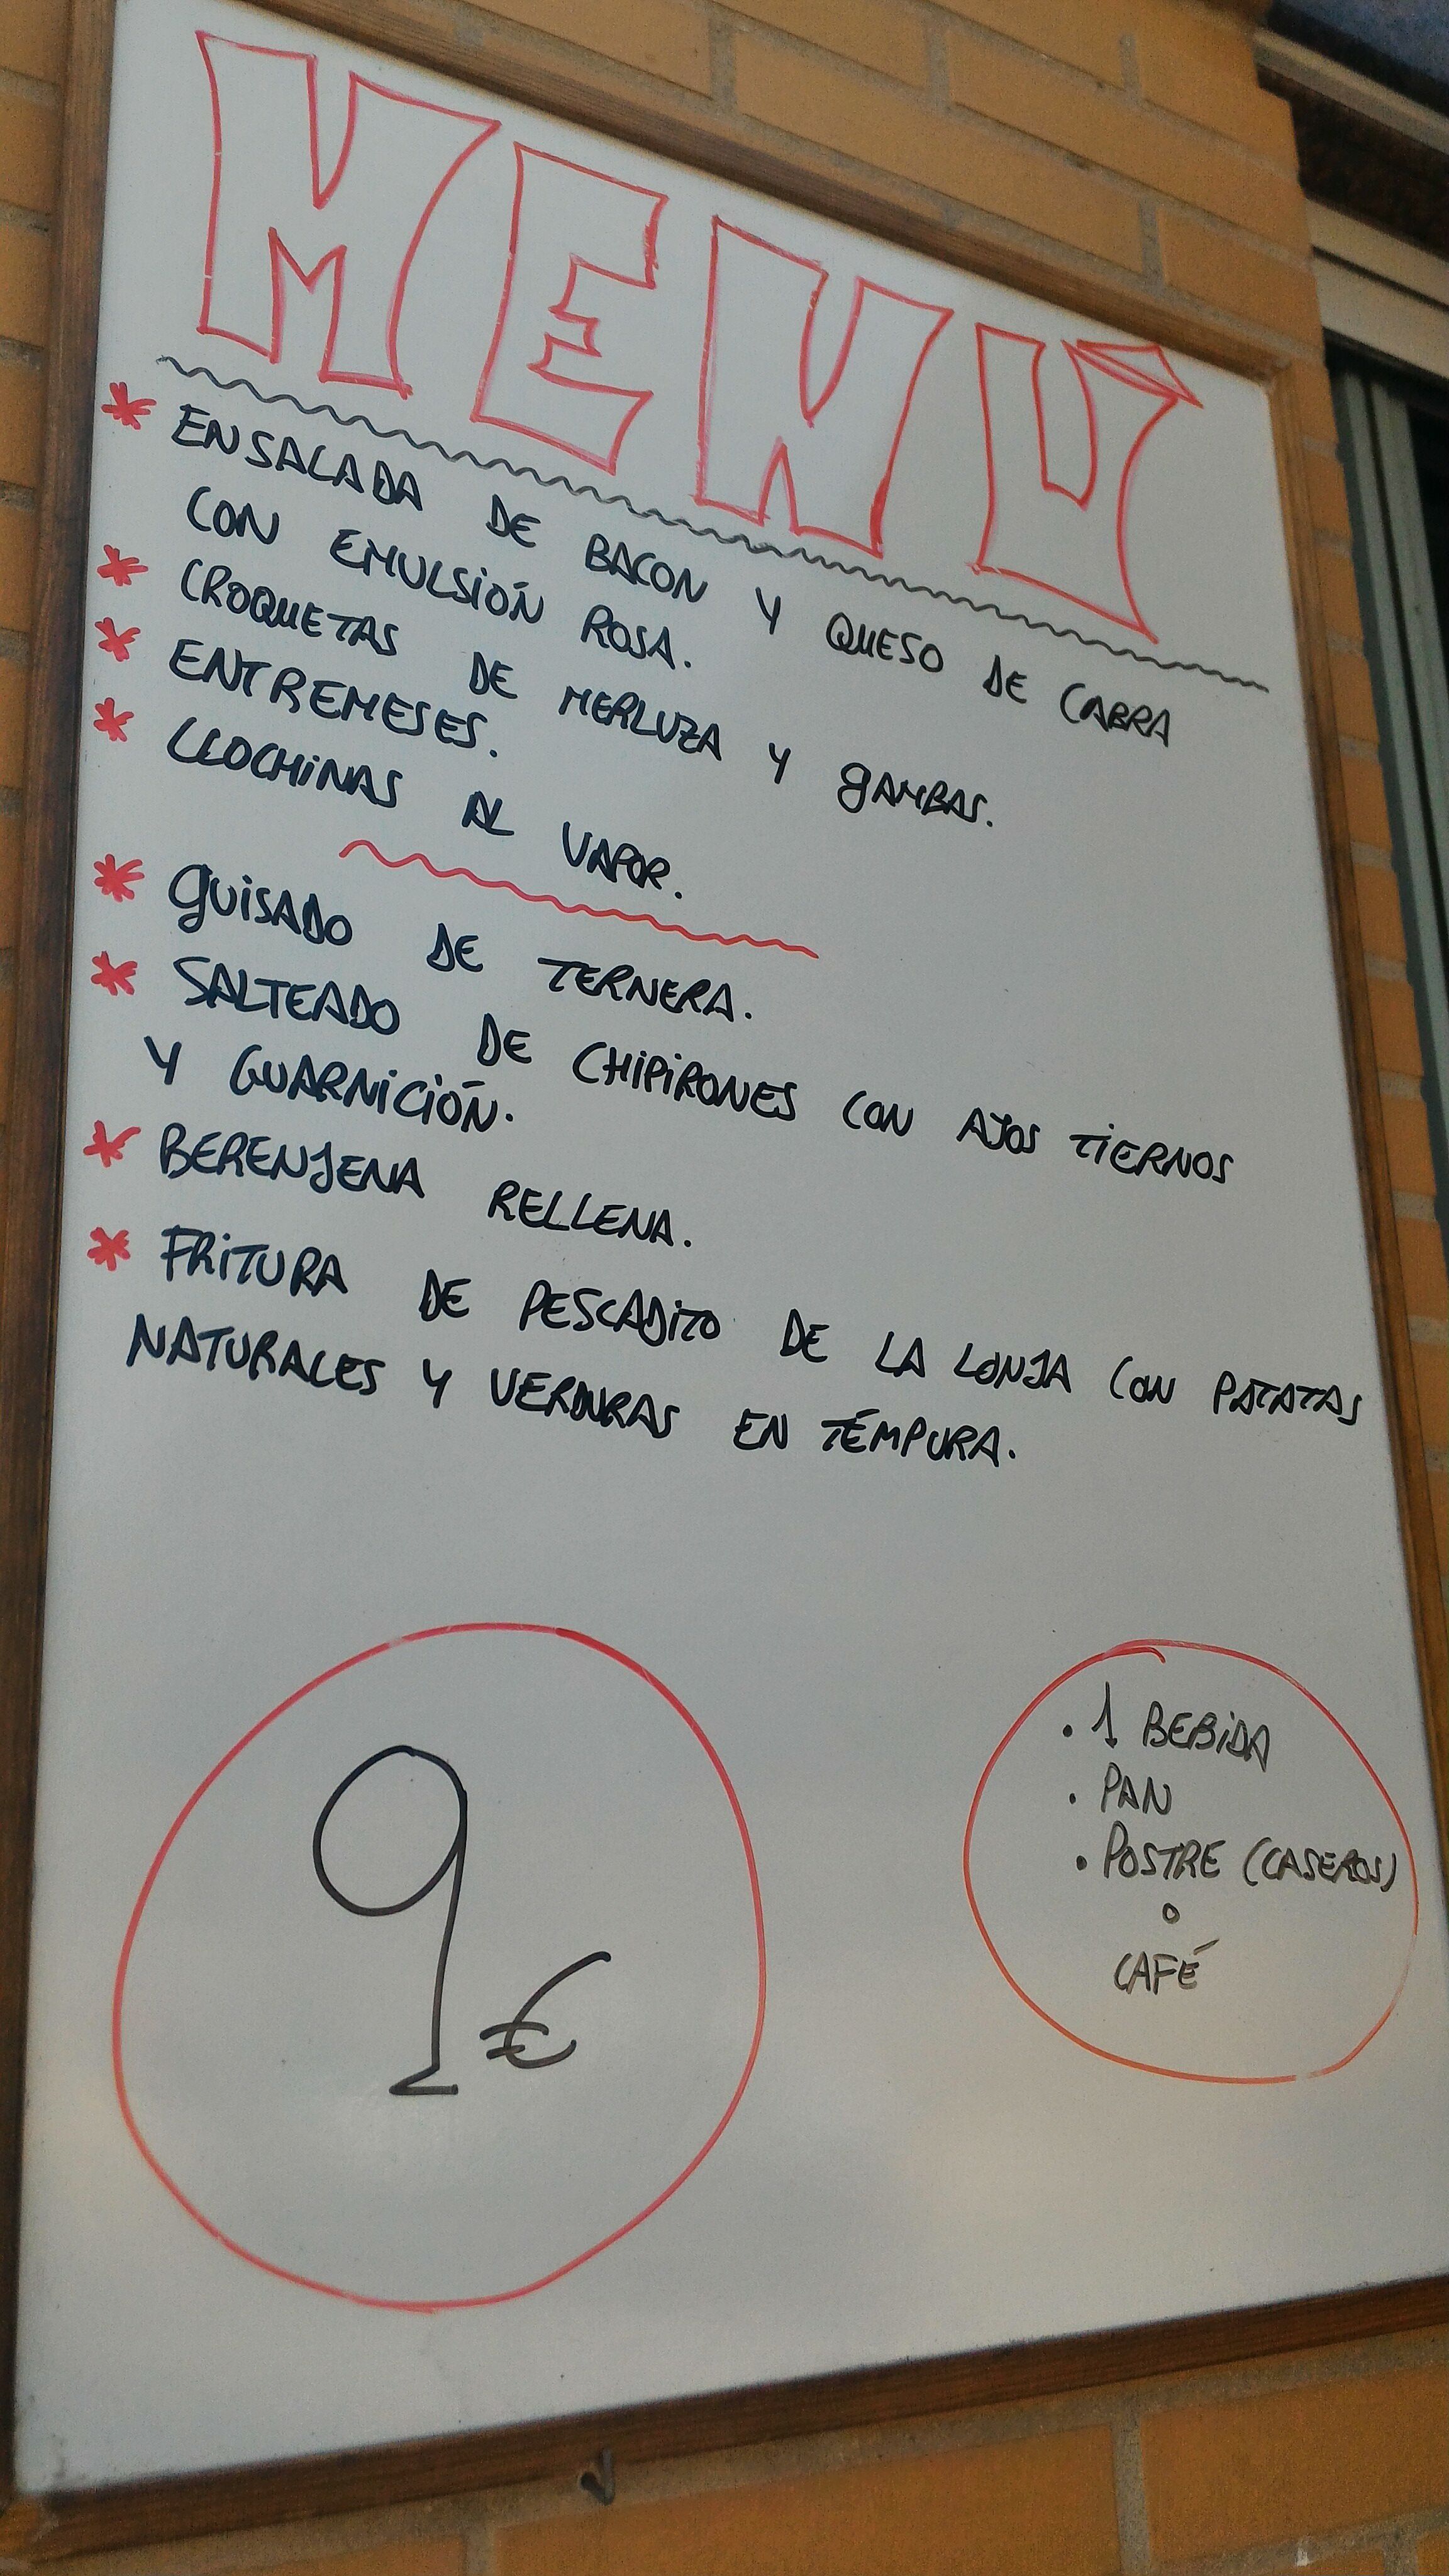 MENÚ
* ENSALADA DE BACON Y QUESO DE CABRA
CON EMULSIÓN ROSA.
* CROQUETAS DE MERLUZA Y GAMBAS.
* ENTREMESES.
* LLOCHINAS AL VAPOR.
* GUISADO DE TERNERA.
* SALTEADO DE CHIPIRONES CON AJOS TIERNOS
Y GUARNICIÓN.
* BERENJENA RELLENA.
* FRITURA DE PESCADITO DE LA LONJA CON PATATAS
NATURALES Y VERDURAS EN TÉMPURA.
9€
· 1 BEBIDA
· PAN
· POSTRE (CASEROS)
o
CAFÉ